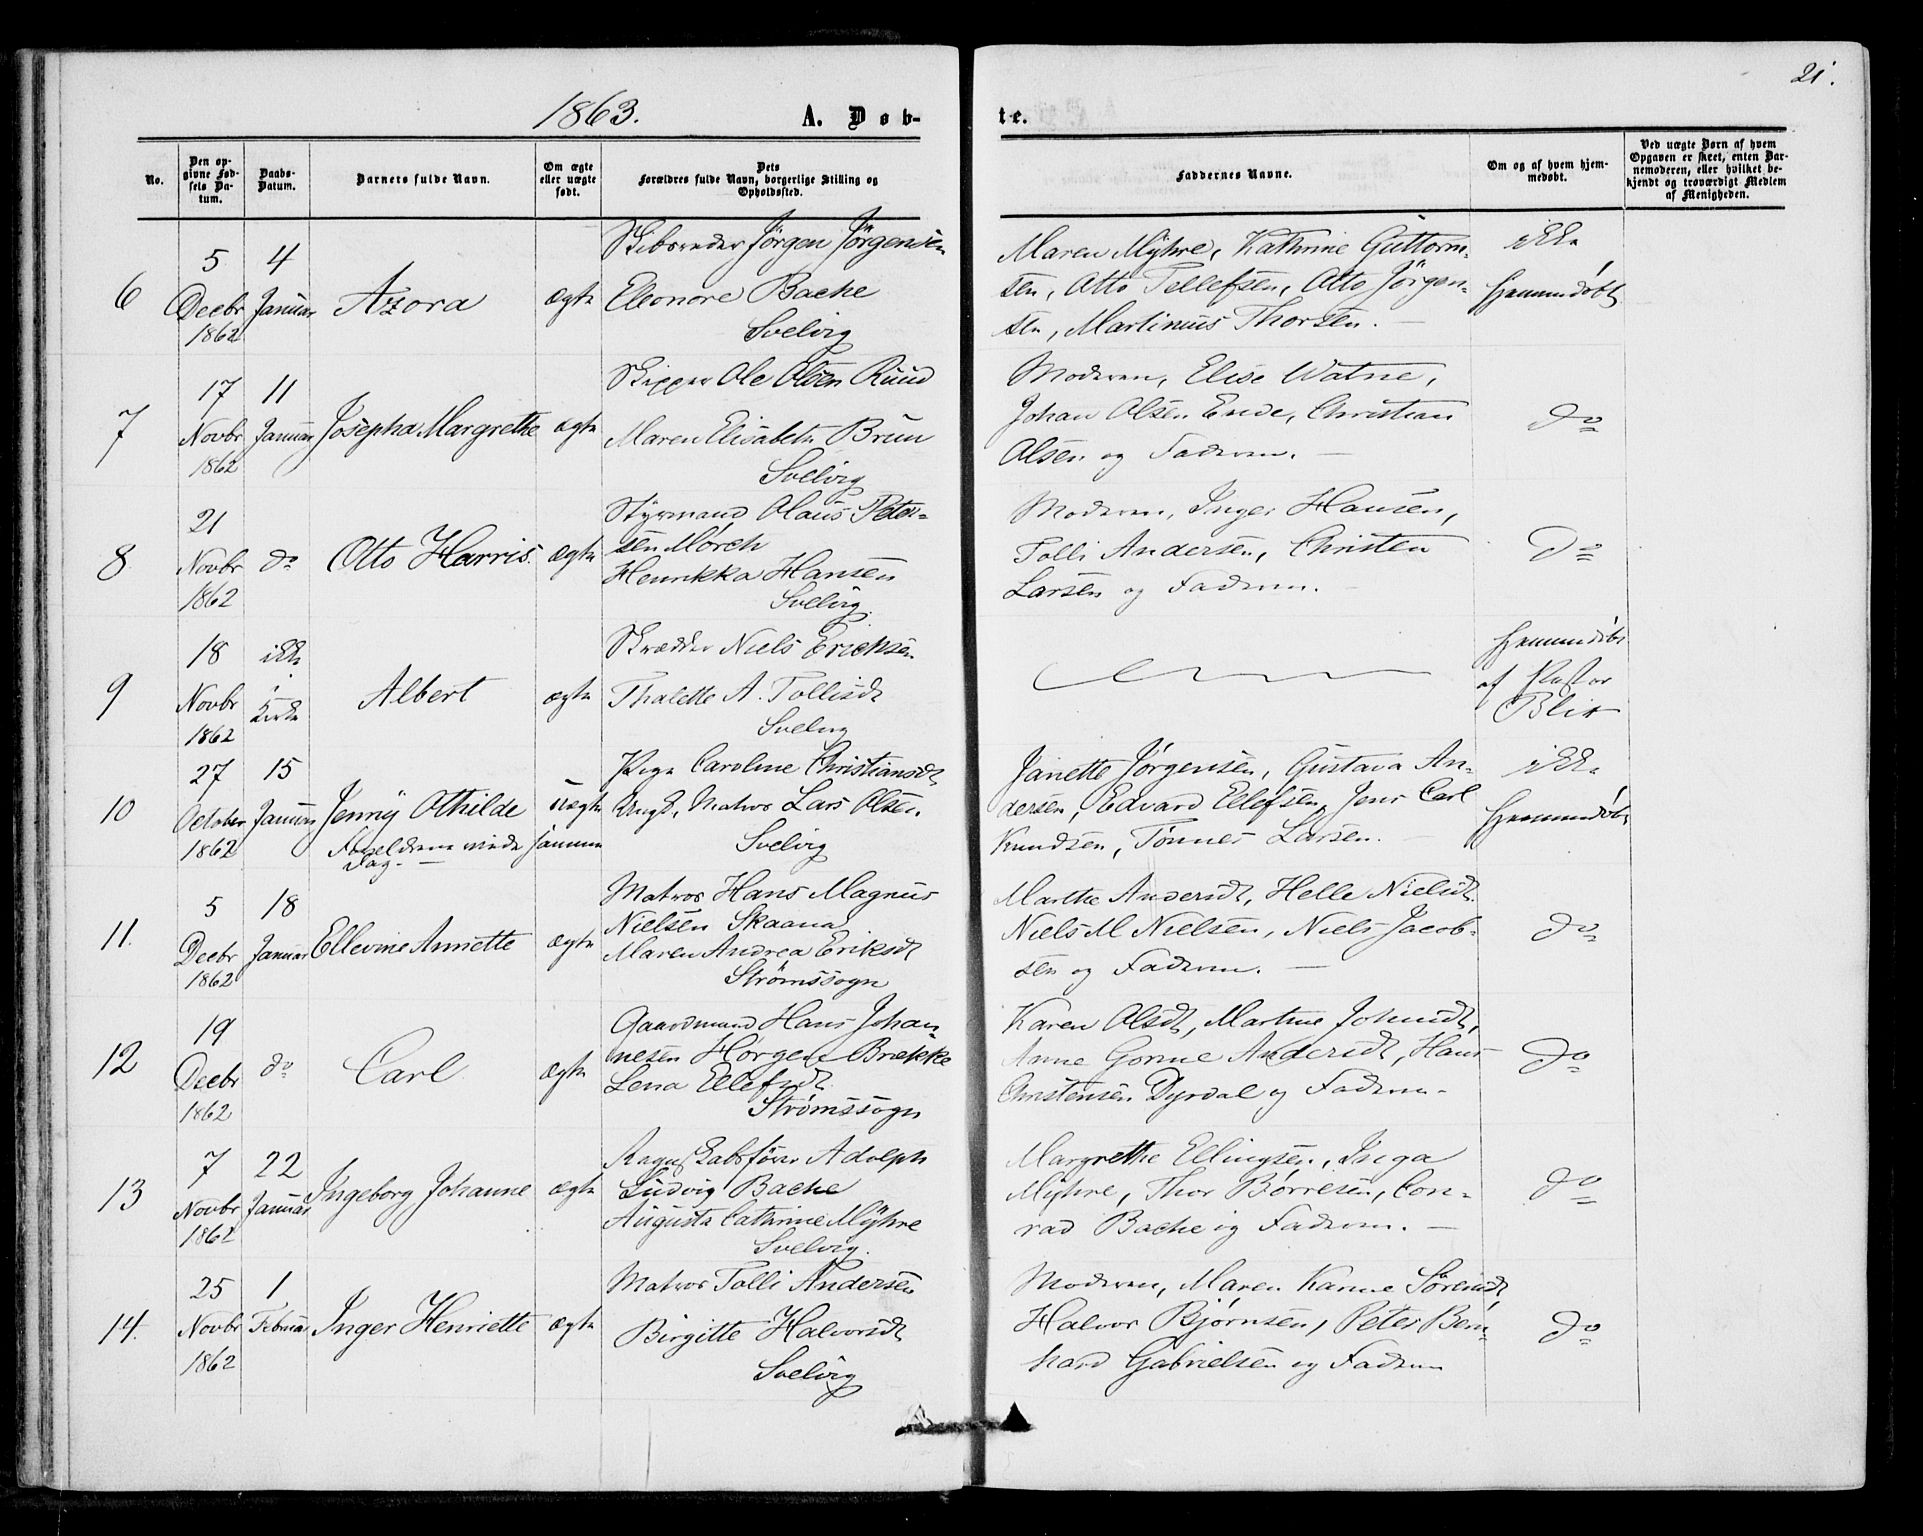 21.
1863. A. Døb-
te.
No.
Den op-
givne Fød-
sels Da-
tum.
Daabs-
Datum.
Barnets fulde Navn.
Om ægte
eller uægte
født.
Dets
Forældres fulde Navn, borgerlige Stilling og
Opholdssted.
Faddernes Navne.
Om og af hvem hjem-
medøbt.
Ved uægte Børn af hvem
Opgaven er skeet, enten Bar-
nemoderen, eller hvilket be-
kjendt og troværdigt Medlem
af Menigheden.
6
5
Decbr
1862
4
Januar
Azora
ægte
Skibsreder Jørgen Jørgensen
Eleonore Bache
Svelvig
Maren Myhre, Kathrine Guttorm-
sen, Otto Tellefsen, Otto Jørgen-
sen, Martinus Thorsen. —
ikke
hjemmedøbt
7
17
Novbr
1862
11
Januar
Josepha Margrethe
ægte
Skipper Ole Olsen Ruud
Maren Elisabeth Brun
Svelvig
Moderen, Elise Watne,
Johan Olsen Ende, Christian
Olsen og Faderen. —
do
8
21
Novbr
1862
do
Otto Harris.
ægte
Styrmand Olaus Peter-
sen Mørch
Henrikka Hansen
Svelvig.
Moderen, Inger Hansen,
Tolli Andersen, Christen
Larsen og Faderen. —
do
9
18
Novbr
1862
ikke
i
Kirke
Albert
ægte
Skrædder Niels Ericksen
Thalette A. Tollisdt
Svelvig
hjemmedøbt
af Pastor
Blix
10
27
October
1862
15
Januar
Jenny Othilde
Forældrene viede samme
Dag. —
uægte
Pige Caroline Christiansdt
Ungk. Matros Lars Olsen.
Svelvig
Janette Jørgensen, Gustava An-
dersen, Edvard Ellefsen, Jens Carl
Knudsen, Tønnes Larsen. —
ikke
hjemmedøbt
11.
5
Decbr
1862
18
Januar
Ellevine Annette
ægte
Matros Hans Magnus
Nielsen Skaana
Maren Andrea Eriksdt
Strømssogn
Marthe Andersdt, Helle Nielsdt.
Niels M Nielsen, Niels Jacob-
sen og Faderen. —
do
12
19
Decbr
1862
do
Carl
ægte
Gaardmand Hans Johan-
nesen Hørgen Brække
Lena Ellefsdt.
Strømssogn
Karen Olsdt, Martine Johnsdt,
Anne Gorine Andersdt, Hans
Christensen Dyrdal og Faderen.
do
13
7
Novbr
1862
22
Januar
Ingeborg Johanne
ægte
Regnskabsfører Adolph
Ludvig Bache
Augusta Cathrine Myhre
Svelvig.
Margrethe Ellingsen, Inga
Myhre, Thor Børresen, Con-
rad Bache og Faderen. —
do
14.
25
Novbr
1862
1
Februar
Inger Henriette
ægte
Matros Tolli Andersen
Birgitte Halvorsdt
Svelvig
Moderen, Maren Karine Sørensdt,
Halvor Bjørnsen, Peter Bern-
hard Gabrielsen og Faderen
do